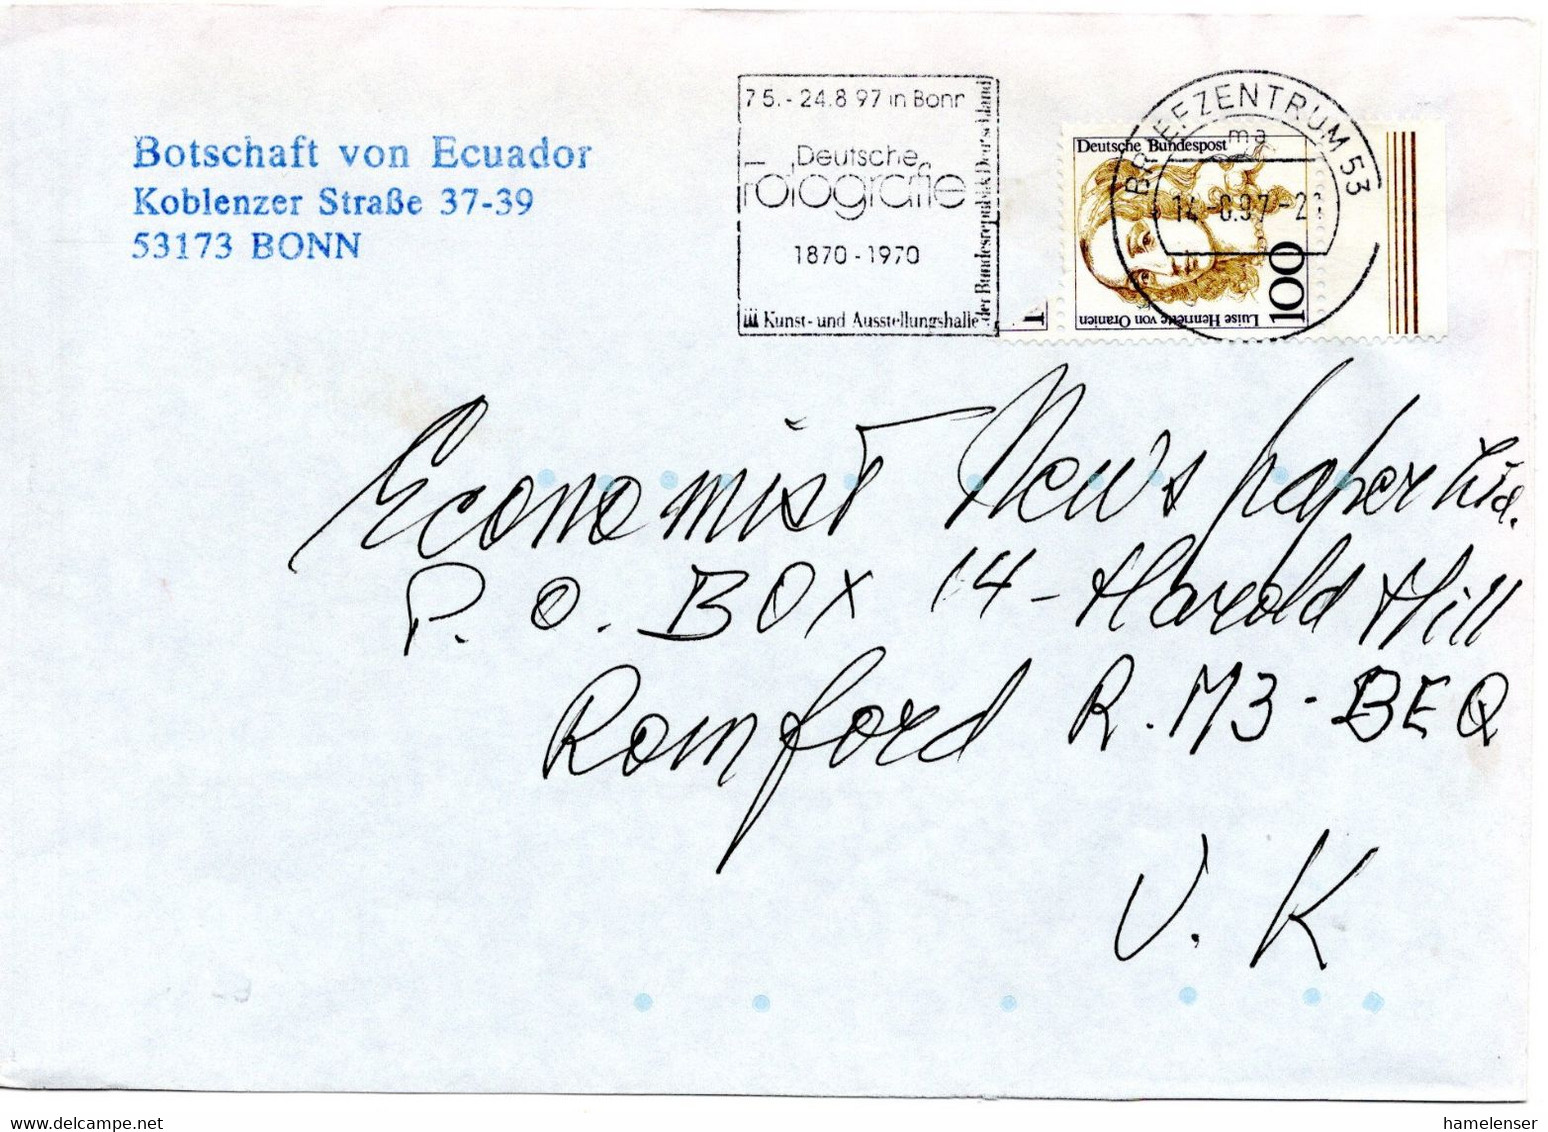 Botschaft von Ecuador
Koblenzer Straße 37-39
53173 BONN
7 5. - 24.8 97 in Bonn
Deutsche
Fotografie
1870 - 1970
Kunst- und Ausstellungshalle
der Bundesrepublik Deutschland
BRIEFZENTRUM 53
ma
14.-8.97-21
Deutsche Bundespost
Luise Henriette von Oranien
100
Economist News paper Ltd.
P. O. BOX 14 - Harold Hill
Romford R. M3 - BEQ
U. K
www.delcampe.net
hamelenser